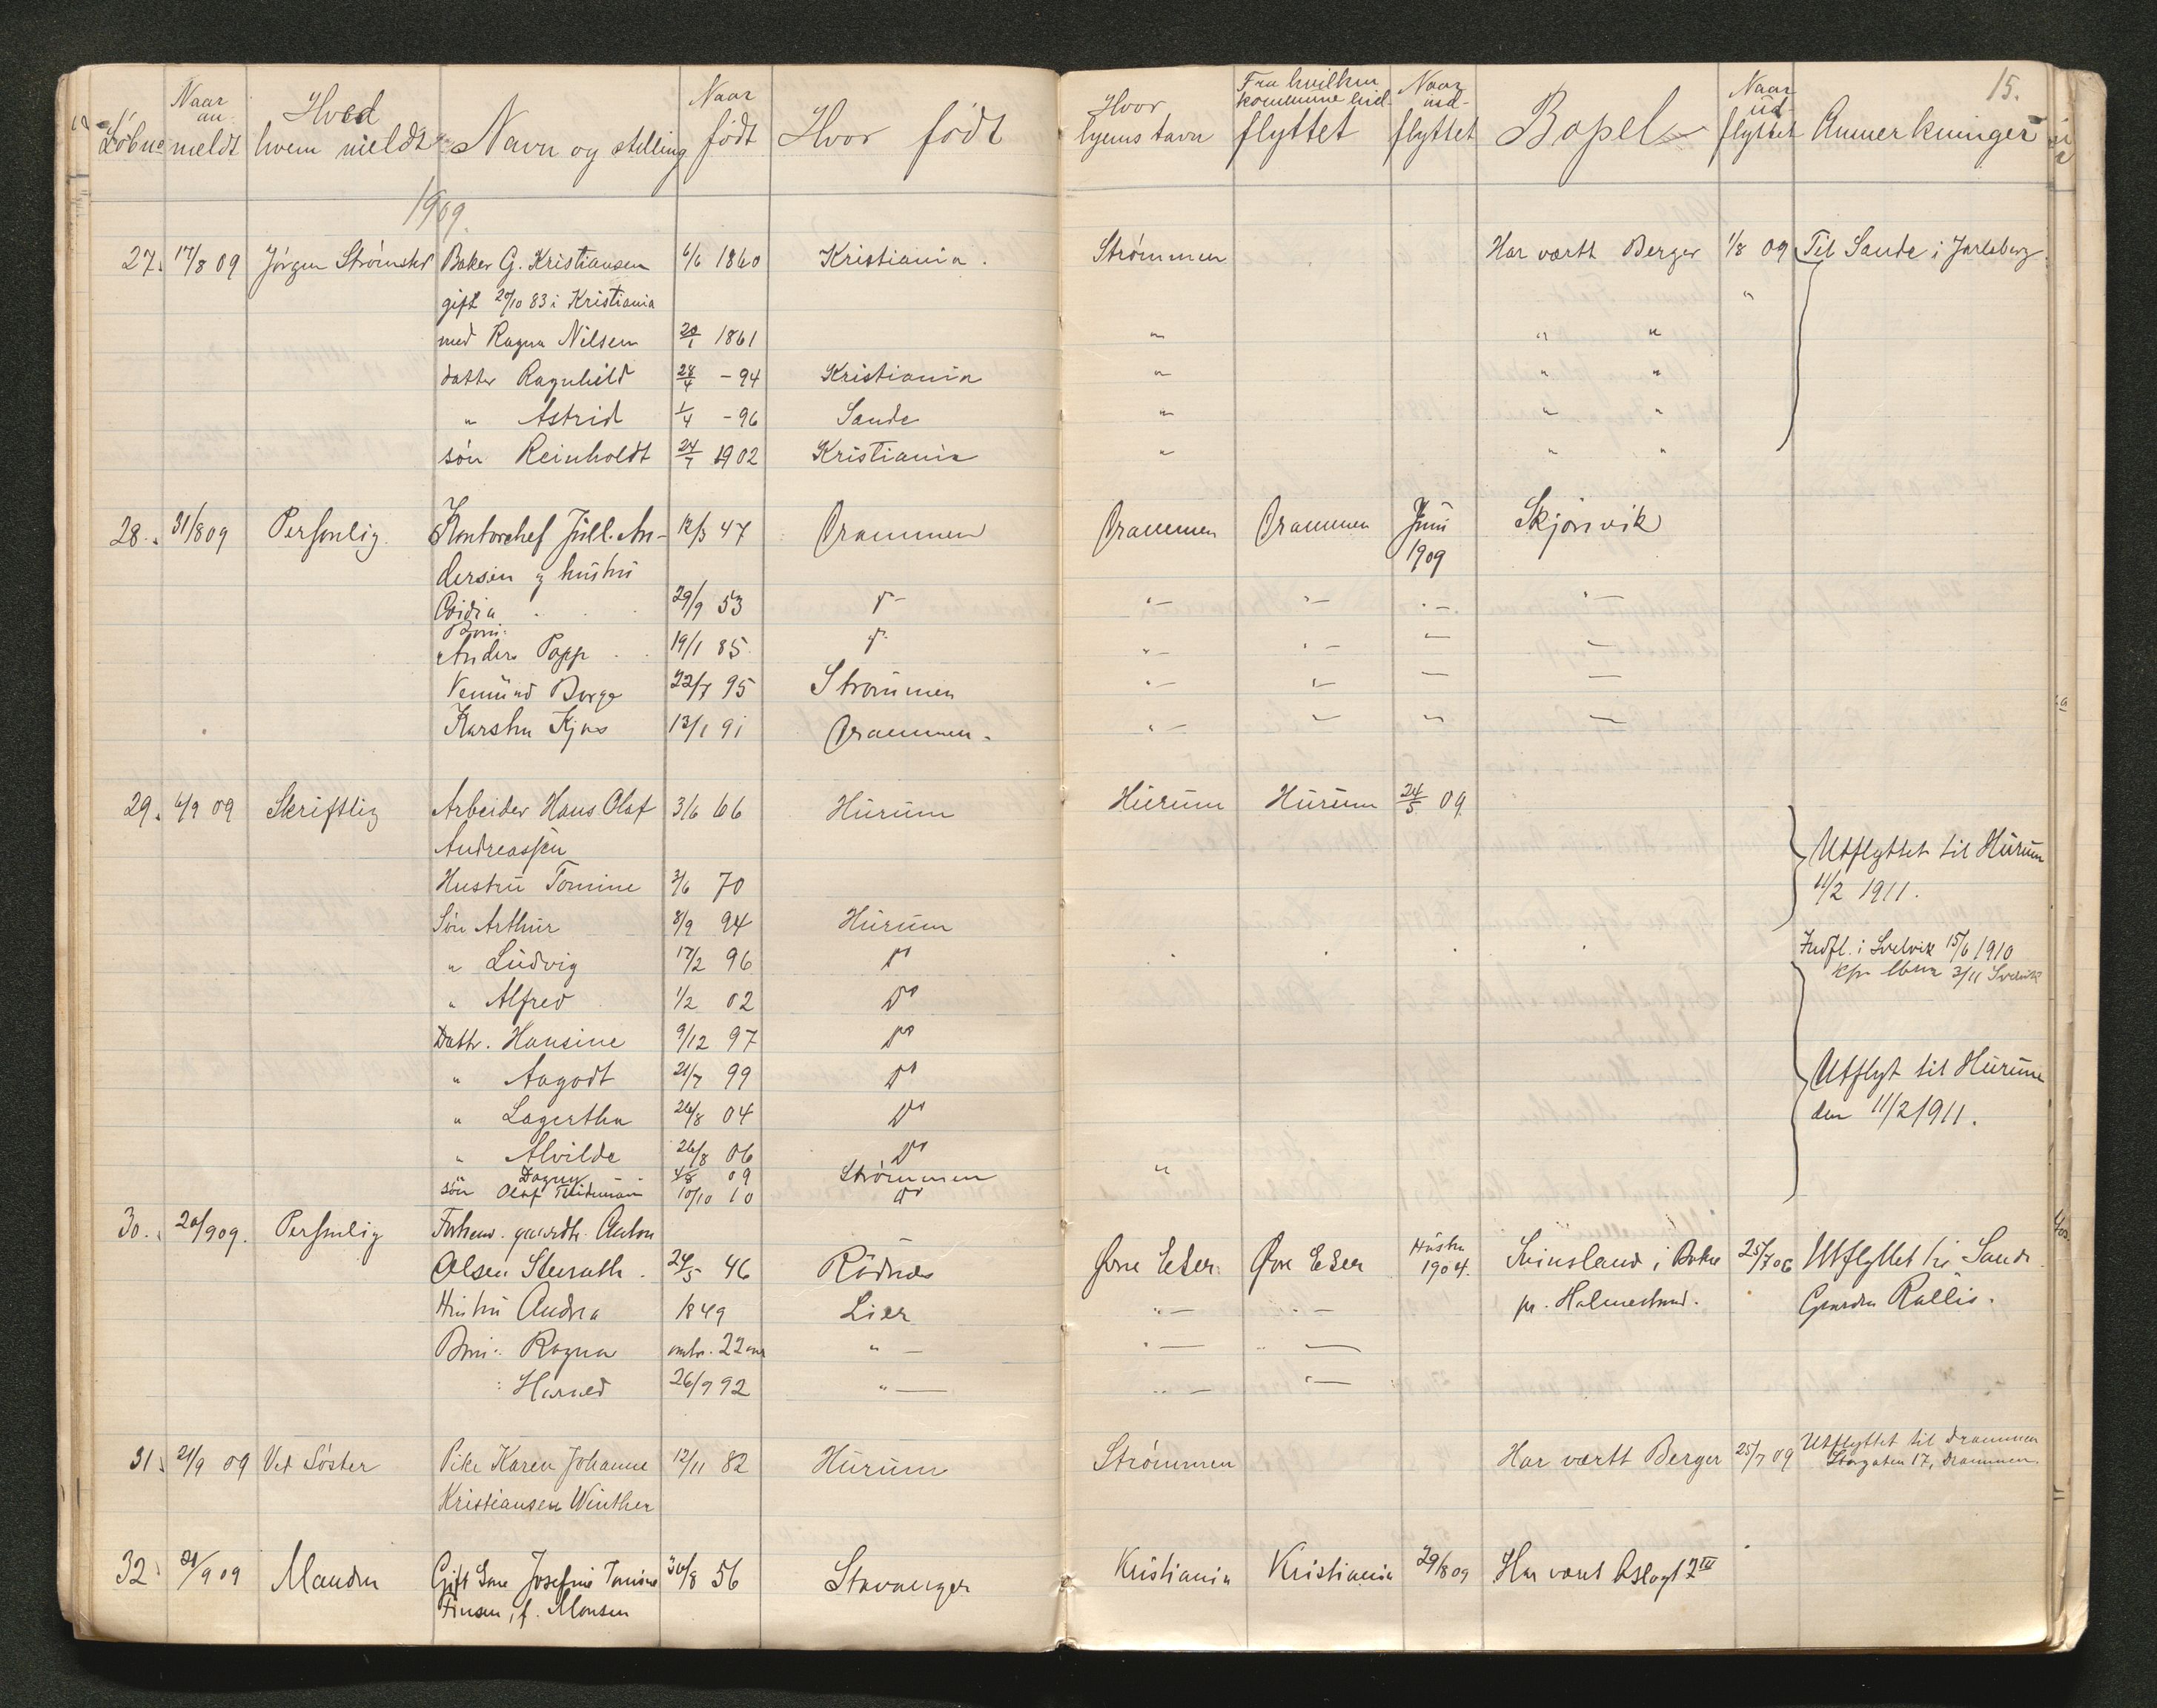 15.
Löbno Naar anmeldt Hved hvem meldt Navn og stilling Naar født Hvor født Hvor hjemstavn Fra hvilken kommune indflyttet Naar indflyttet Bopel Naar udflyttet Anmerkninger
1909.
27. 17/8 09 Jörgen Baker G. Kristiansen 6/6 1860 Kristiania. Strømmen Har vært Berger 1/8 09 Til Sande i Jarlsberg.
gift 20/10 83 i Kristiania "
med Ragna Nilsen 20/1 1861 " " "
datter Ragnhild 28/4 - 94 Kristiania " " "
" Astrid 1/4 - 96 Sande " " "
sön Reinholdt 24/7 1902 Kristiania " " "
28. 31/8 09 Personlig. Kontorchef Jull. An- 12/3 47 Drammen Drammen Drammen Juni Skjörvik
dersen og hustru 1909
29/9 53 " — " — " — " —
Börn:
Anders Popp 19/1 85 " — " — — —
Vemund Borge 22/7 95 Strømmen " — " — — —
Karsten 13/1 91 Drammen. " — — — —
29. 4/9 09 Skriftlig Arbeider Hans Olaf 3/6 66 Hurum Hurum Hurum 24/5 09
Andreassen Utflyttet til Hurum
Hustru Tomine 3/6 70 11/2 1911.
Sön Arthur 8/9 94 Hurum
" Ludvig 17/2 96 Do Indfl. i Svelvik 15/6 1910
3/11 Svelvik
" Alfred 1/2 02 Do
Dattr. Hansine 9/12 97 Do
" Aagodt 21/7 99 Do Utflyt til Hurum
" Lagertha 26/8 04 Do den 11/2 1911.
" Alvilde 26/8 06 Do
Dagny 4/8 09 Strømmen "
sön Olaf 10/10 10 Do
30. 20/9 09. Personlig Forhenv. gaardbr. Anton
Olsen 24/5 46 Rödnes Øvre Eker Øvre Eker Høsten 1904. i Botne 25/7 06 Utflyttet til Sande
Hustru Andrea 1849 Lier " — " — pr. Holmestrand. Gaarden
Börn: Ragna omtr. 22 aar " — " — " —
: Harald 26/9 92 " — " — " —
31. 21/9 09 Ved Söster Pike Karen Johanne 12/11 82 Hurum Strømmen Har vært Berger 25/7 09 Utflyttet til Drammen
Kristiansen Winther Storgaten 17, Drammen.
32. 21/9 09 Manden Gift Josefine Tomine 30/8 56 Stavanger Kristiania Kristiania 29/8 09 Har vært
Finsen, f. Monsen